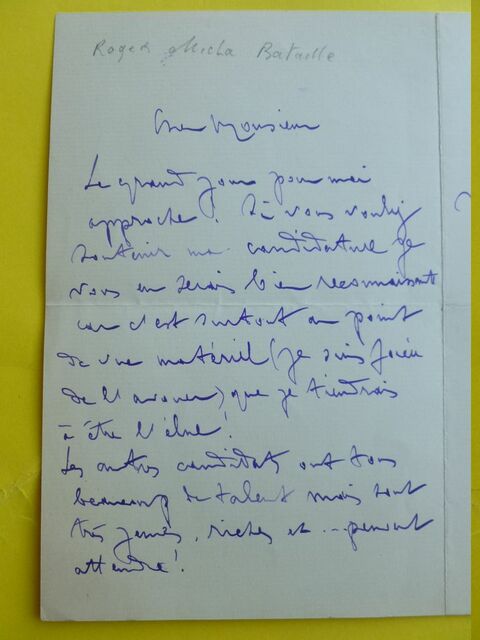 Roger Micha Bataille
Cher Monsieur
Le grand jour pour moi
approche. Si vous vouliez
soutenir ma candidature je
vous en serais bien reconnaissante
car c'est surtout au point
de vue matériel (je suis forcée
de l'avouer) que je tiendrais
à être l'élue!
Les autres candidats ont tous
beaucoup de talent mais sont
très jeunes, riches et ... peuvent
attendre!